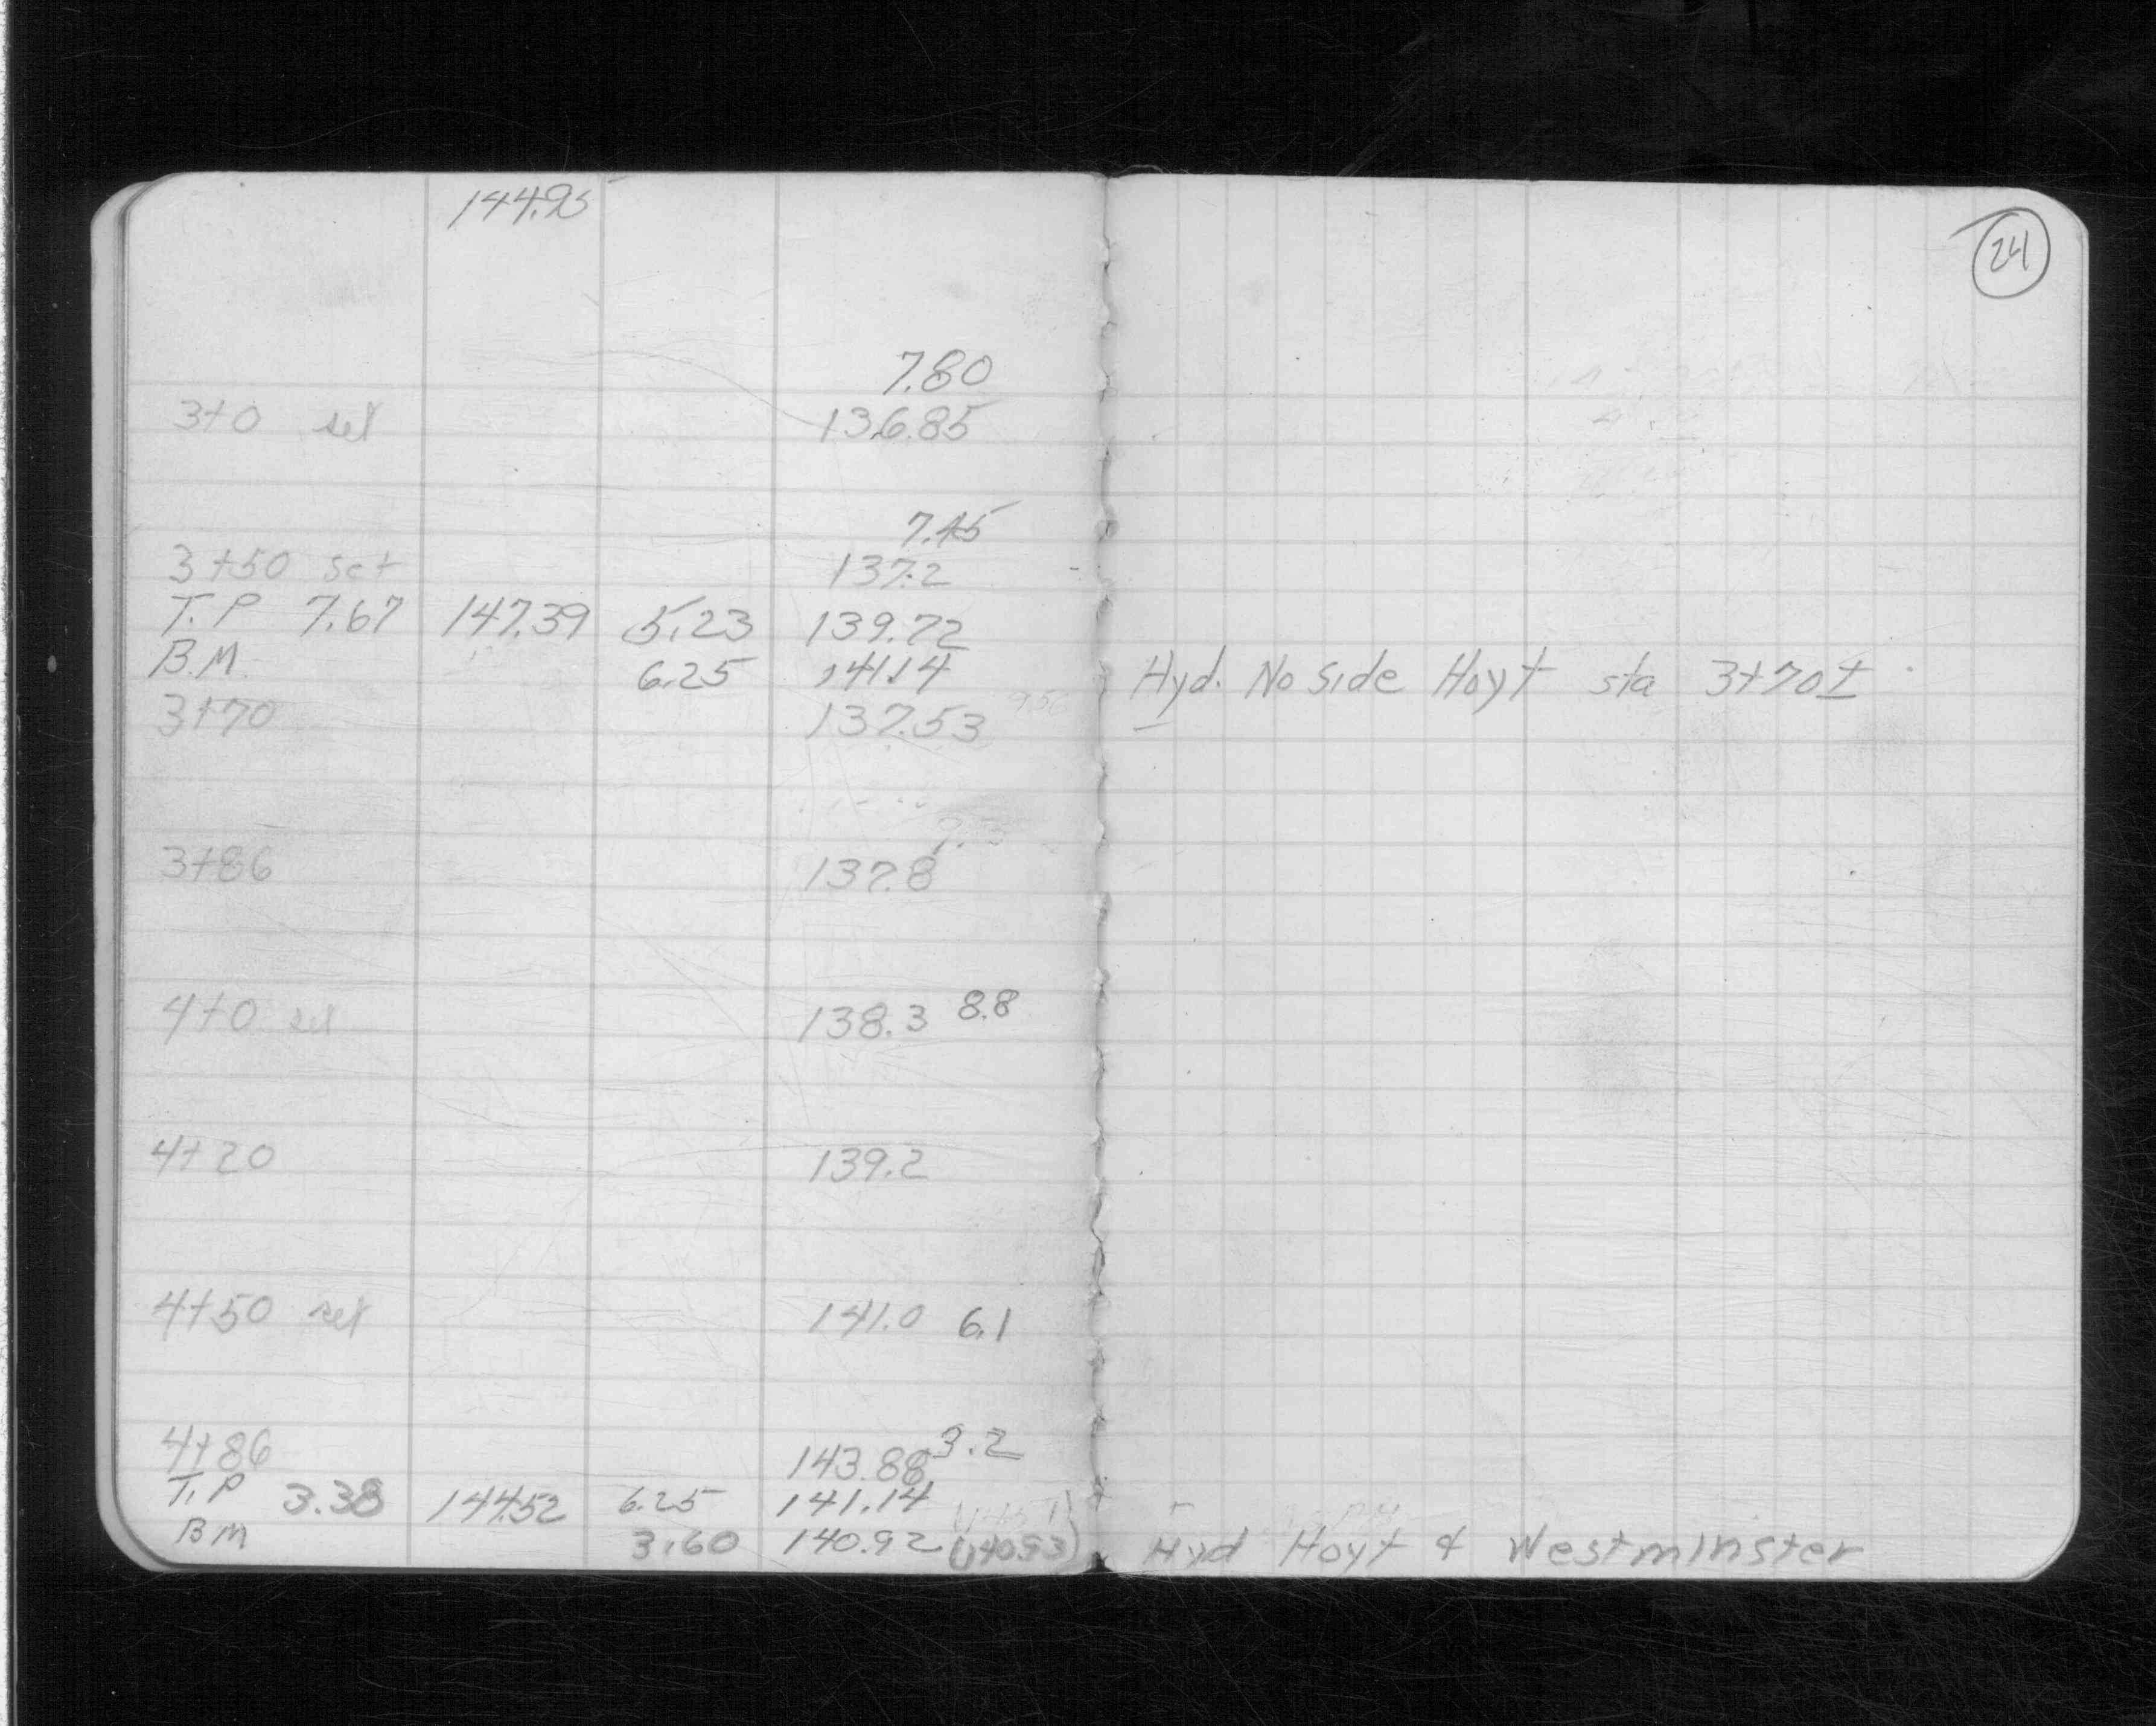 144.95
24
7.80
3+0 set 136.85
7.75
3+50 set 137.2
T.P 7.67 147.39 5.23 139.72
B.M. 6.25 141.14 Hyd. No Side Hoyt sta 3+70±
3+70 137.53 9.56
3+86 137.8
4+0 set 138.3 8.8
4+20 139.2
4+50 set 141.0 6.1
4+86 143.88 3.2
T.P 3.38 144.52 6.25 141.14
BM 3.60 140.92 (140.93) Hyd Hoyt & Westminster